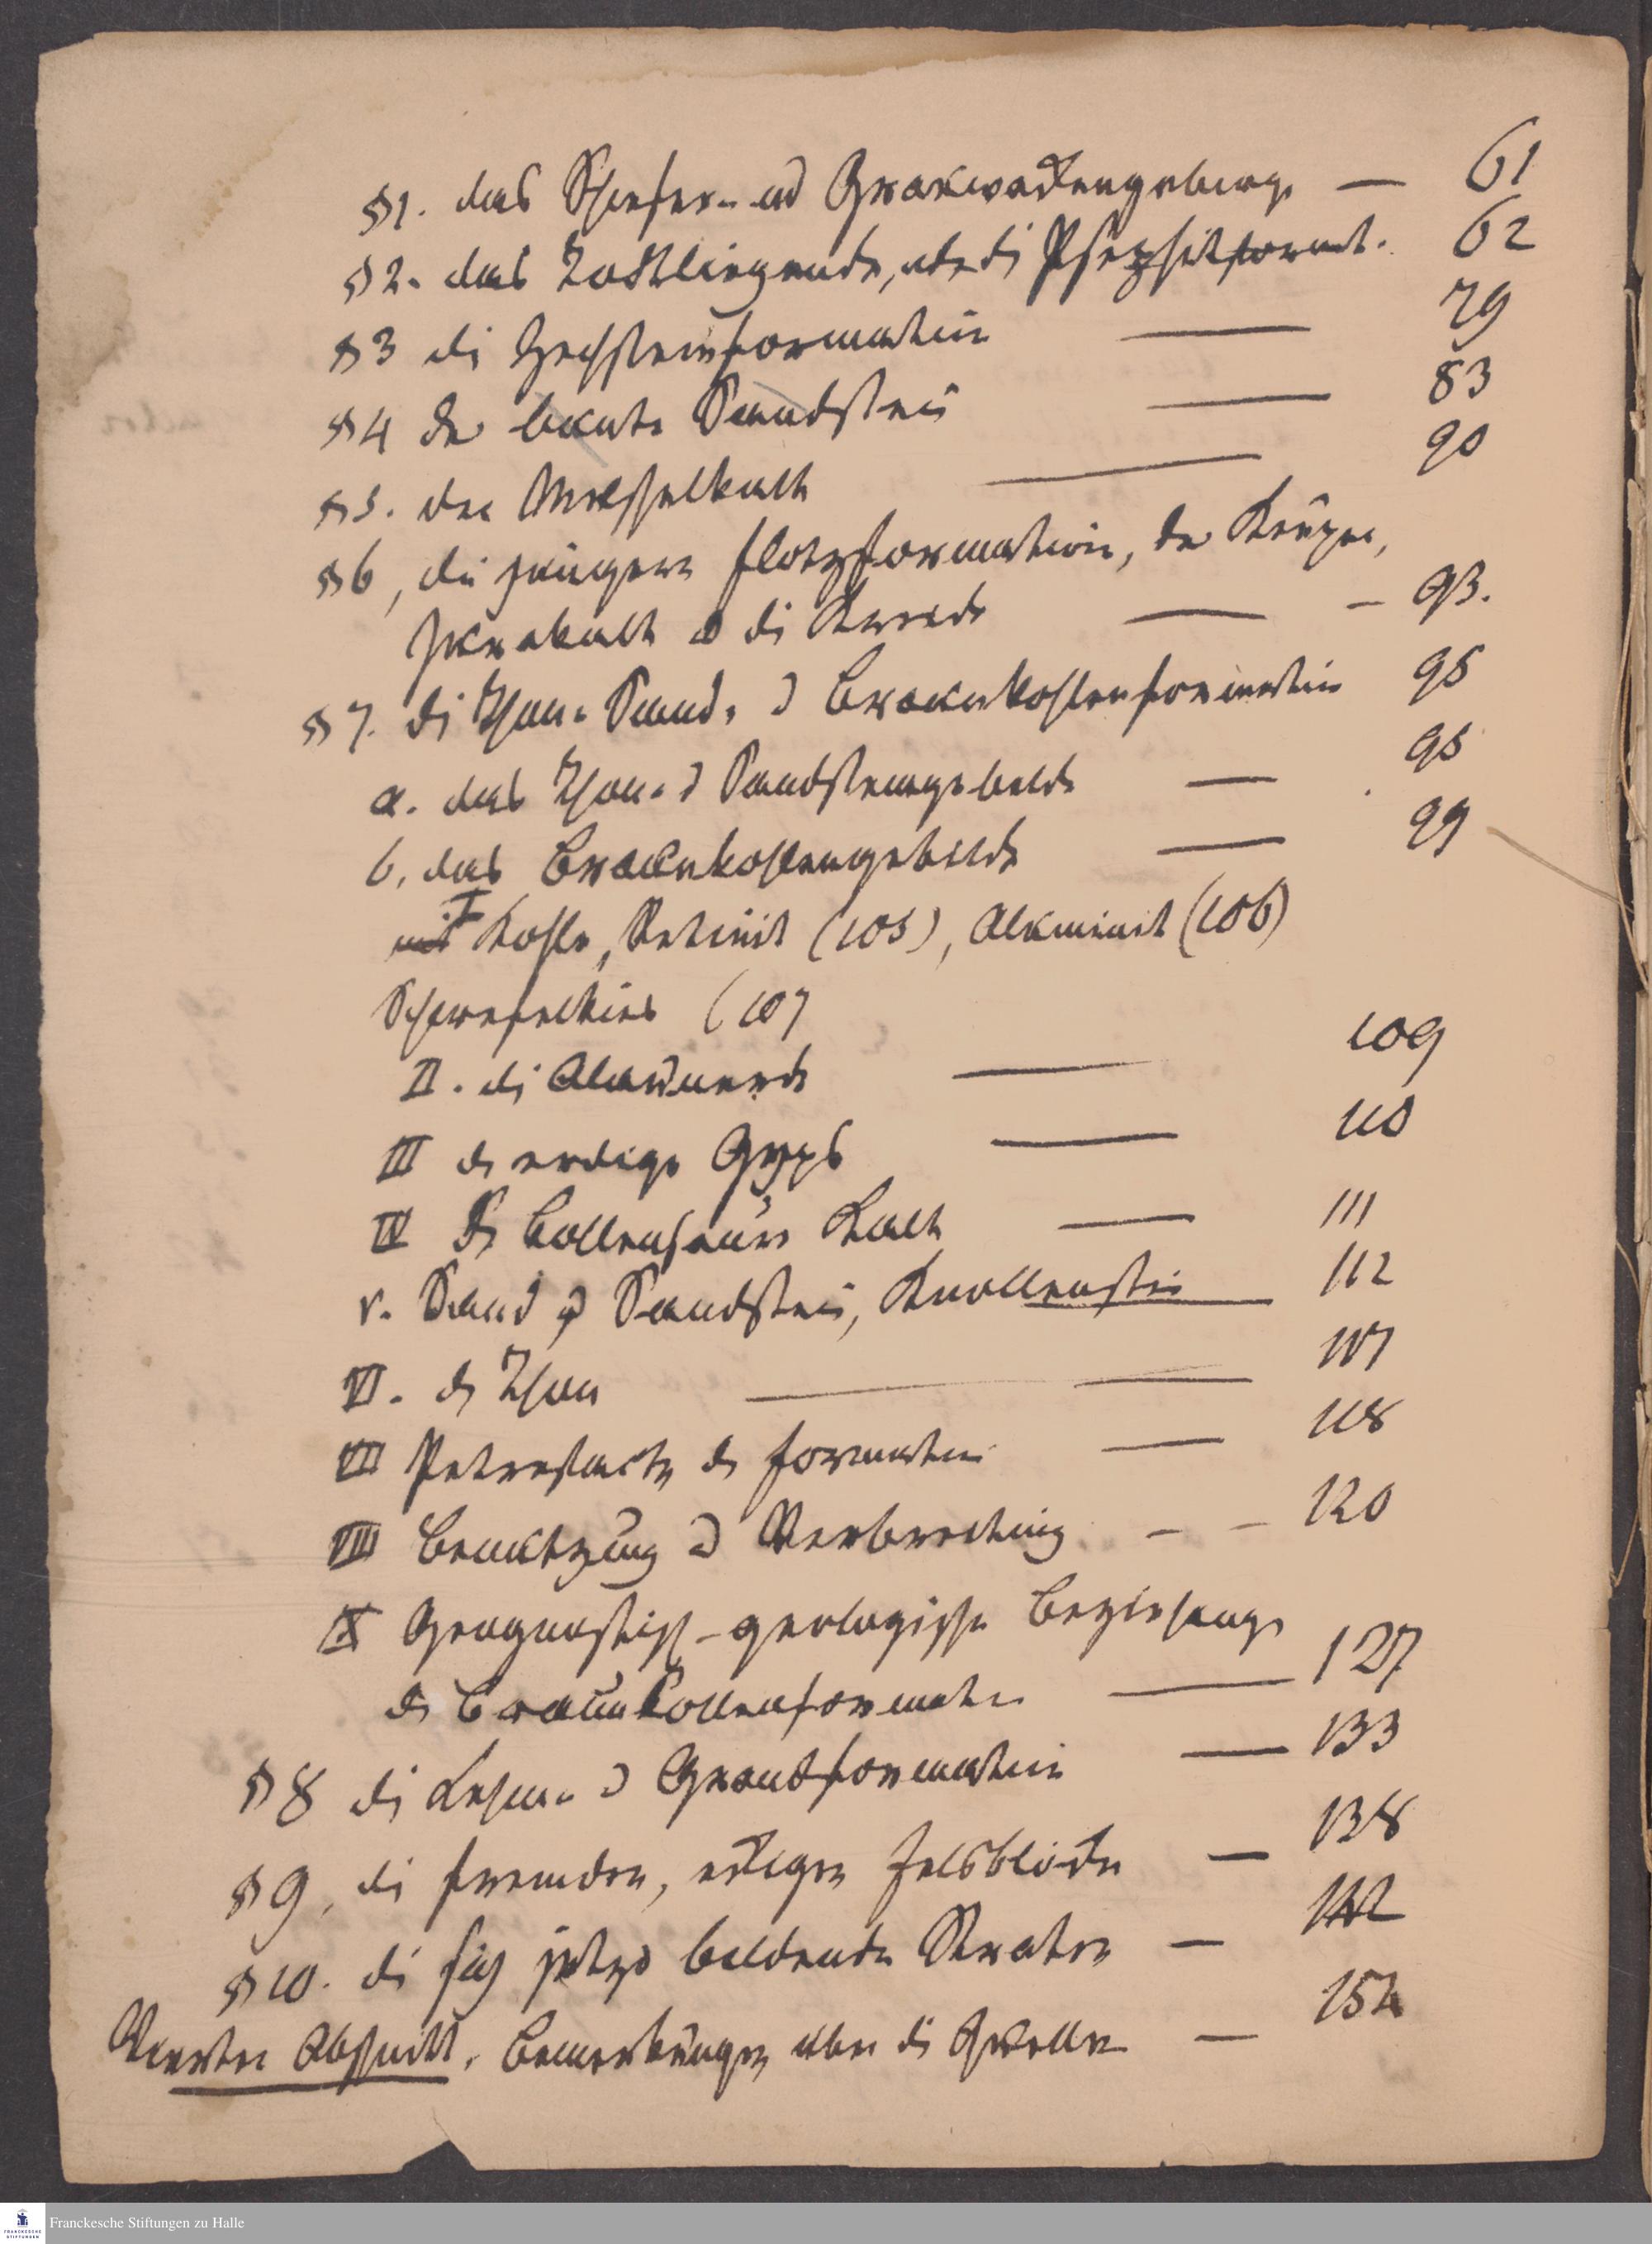 §1. das Schiefer- und Grauwackengebirge — 61
§2. das Todtliegende, oder di Psephitformat. 62
§3 di Zechsteinformation — 79
§4 der bunte Sandstein — 83
§5. der Muschelkalk — 90
§6, die jüngern Flötzformation, der Keuper,
Jurakalk u di Kreide — — 93.
§7. di Thon- Sand- u Braunkohlenformation 95
a. das Thon- u Sandsteingebilde — 95
b. das Braunkohlengebilde — 99
I Kohle, Retinit (105), Aluminit (106)
Schwefelkies (107
II. di Alaunerde — 109
III der erdige Gyps — 110
IV Der Kalk — 111
V. Sand u Sandstein, Knollenstein 112
VI. der Thon — 117
VII Petrefacte der Formation — 118
VIII Benutzung u Verbreitung — — 120
IX Geognostisch-geologische Beziehung
der Braunkohlenformation — 127
§8 di Lehm- u Grandformation — 133
§9, di fremden, eckigen Felsblöcke — 138
§10. di sich jetzo bildende Straten — 142
Vierter Abschnitt. Bemerkungen über di Quellen — 154
Franckesche Stiftungen zu Halle
FRANCKESCHE
STIFTUNGEN